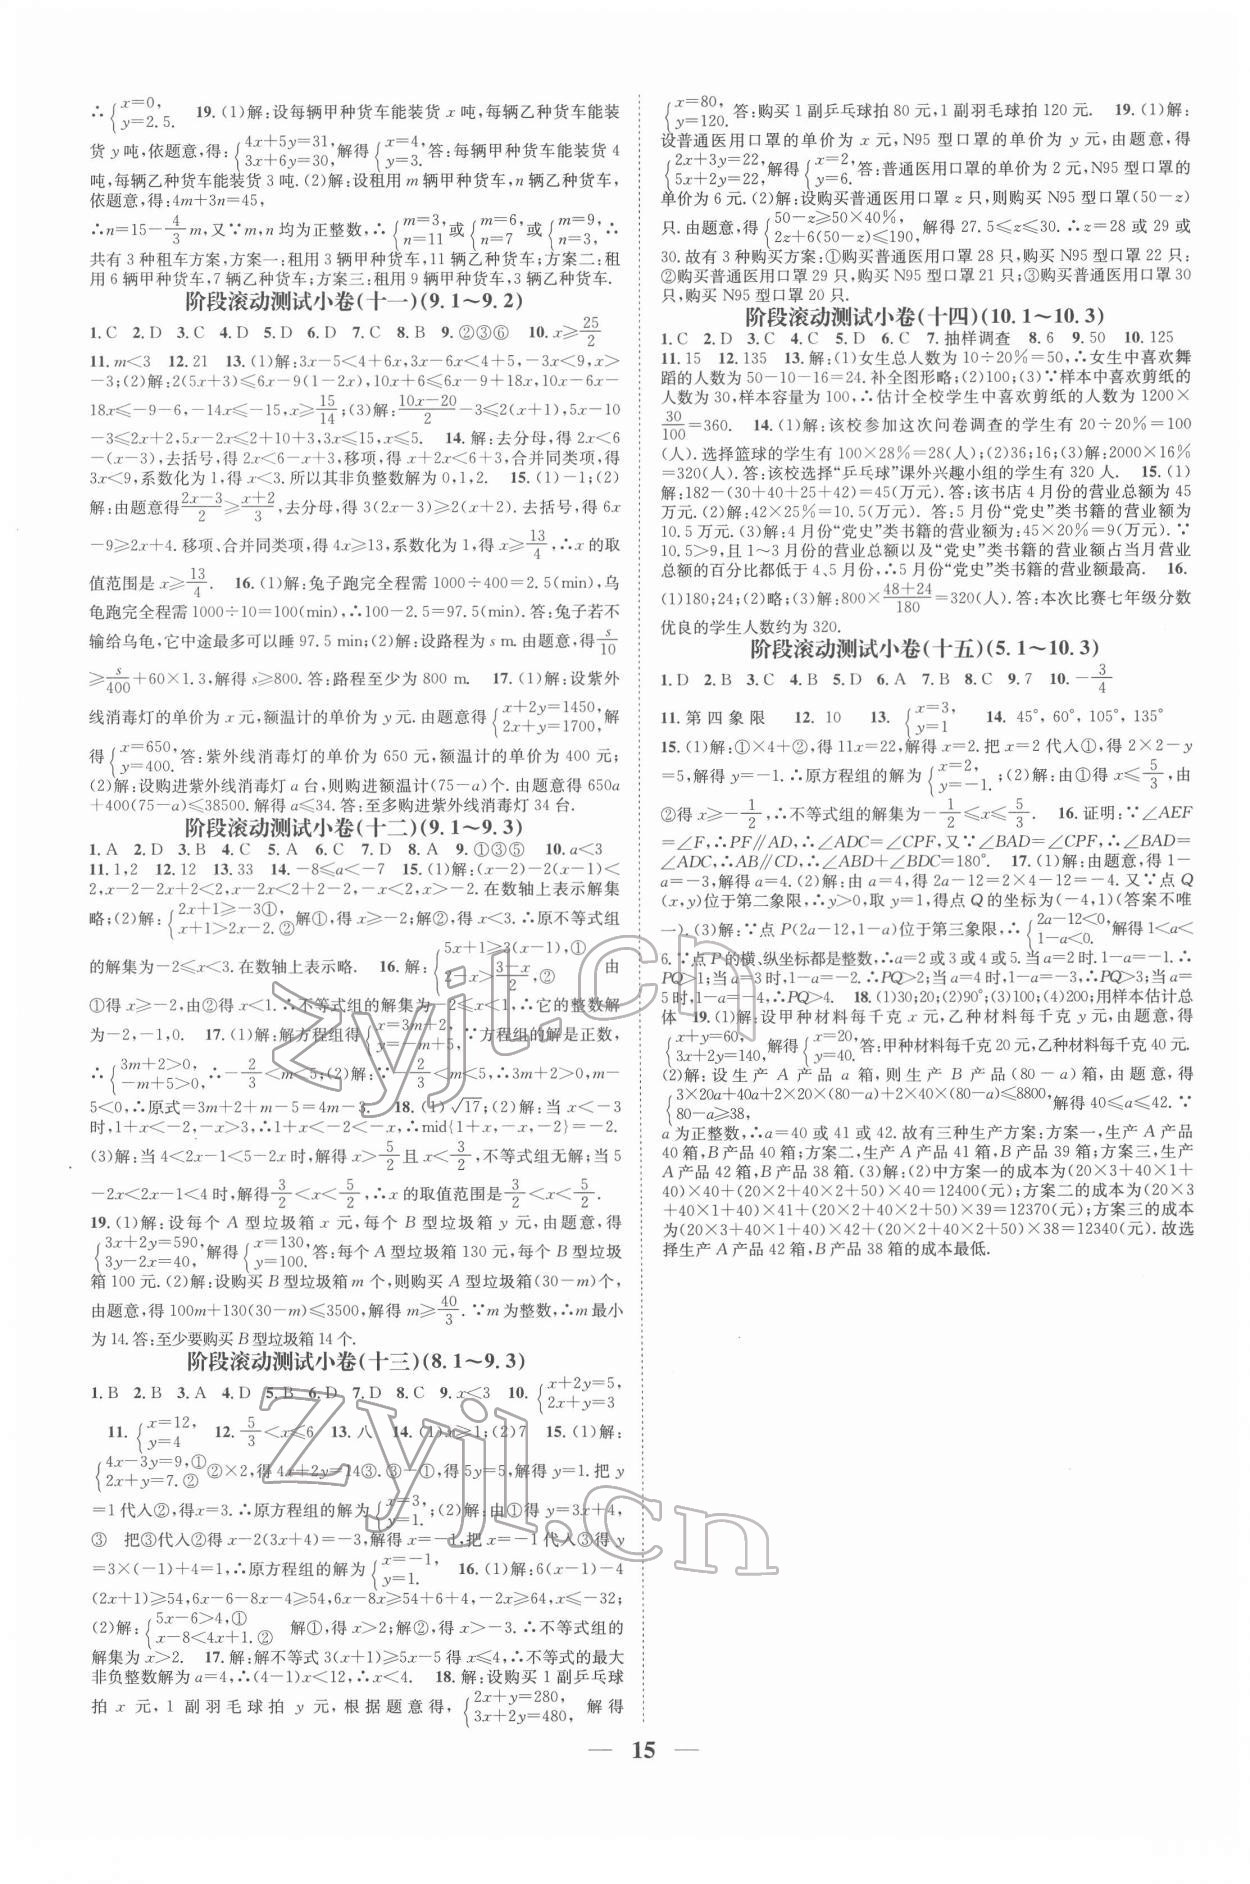 ∴{x=0, y=2.5. 19.(1)解:设每辆甲种货车能装货 x 吨,每辆乙种货车能装
货 y 吨,依题意,得:{4x+5y=31, 3x+6y=30,解得{x=4, y=3.答:每辆甲种货车能装货 4
吨,每辆乙种货车能装货 3 吨.(2)解:设租用 m 辆甲种货车,n 辆乙种货车,
依题意,得:4m+3n=45,
∴n=15-4/3m,又∵m,n 均为正整数,∴{m=3, n=11或{m=6, n=7或{m=9, n=3,∴
共有 3 种租车方案,方案一:租用 3 辆甲种货车,11 辆乙种货车;方案二:租
用 6 辆甲种货车,7 辆乙种货车;方案三:租用 9 辆甲种货车,3 辆乙种货车.
阶段滚动测试小卷(十一)(9.1～9.2)
1.C 2.D 3.C 4.D 5.D 6.D 7.C 8.B 9.②③⑥ 10.x≥25/2
11.m<3 12.21 13.(1)解:3x-5<4+6x,3x-6x<4+5,-3x<9,x>
-3;(2)解:2(5x+3)≤6x-9(1-2x),10x+6≤6x-9+18x,10x-6x-
18x≤-9-6,-14x≤-15,x≥15/14;(3)解:(10x-20)/2-3≤2(x+1),5x-10
-3≤2x+2,5x-2x≤2+10+3,3x≤15,x≤5. 14.解:去分母,得 2x<6
-(x-3),去括号,得 2x<6-x+3,移项,得 x+2x<6+3,合并同类项,得
3x<9,系数化为 1,得 x<3.所以其非负整数解为 0,1,2. 15.(1)-1;(2)
解:由题意得(2x-3)/2≥(x+2)/3,去分母,得 3(2x-3)≥2(x+2).去括号,得 6x
-9≥2x+4.移项、合并同类项,得 4x≥13,系数化为 1,得 x≥13/4,∴x 的取
值范围是 x≥13/4. 16.(1)解:兔子跑完全程需 1000÷400=2.5(min),乌
龟跑完全程需 1000÷10=100(min),∴100-2.5=97.5(min).答:兔子若不
输给乌龟,它中途最多可以睡 97.5 min;(2)解:设路程为 s m.由题意,得s/10
≥s/400+60×1.3,解得 s≥800.答:路程至少为 800 m. 17.(1)解:设紫外
线消毒灯的单价为 x 元,额温计的单价为 y 元.由题意得{x+2y=1450, 2x+y=1700,解
得{x=650, y=400.答:紫外线消毒灯的单价为 650 元,额温计的单价为 400 元;
(2)解:设购进紫外线消毒灯 a 台,则购进额温计(75-a)台.由题意得 650a
+400(75-a)≤38500.解得 a≤34.答:至多购进紫外线消毒灯 34 台.
阶段滚动测试小卷(十二)(9.1～9.3)
1.A 2.D 3.B 4.C 5.A 6.C 7.D 8.A 9.①③⑤ 10.a<3
11.1,2 12.12 13.33 14.-8≤a<-7 15.(1)解:(x-2)-2(x-1)<
2,x-2-2x+2<2,x-2x<2+2-2,-x<2,x>-2.在数轴上表示解集
略;(2)解:{2x+1≥-3①, x+1>2x-2.②解①,得 x≥-2;解②,得 x<3.∴原不等式组
的解集为-2≤x<3.在数轴上表示略. 16.解:{5x+1≥3(x-1),① 2-x>(3-x)/2,② 由
①得 x≥-2,由②得 x<1.∴不等式组的解集为-2≤x<1,∴它的整数解
为-2,-1,0. 17.(1)解:解方程组得{x=3m+2, y=-m+5,∵方程组的解是正数,
∴{3m+2>0, -m+5>0;∴-2/3<m<5;(2)解:∵-2/3<m<5,∴3m+2>0,m-
5<0,∴原式=3m+2+m-5=4m-3. 18.(1)√17;(2)解:当 x<-3
时,1+x<-2,-x>3;∴1+x<-2<-x,∴mid{1+x,-x,-2}=-2.
(3)解:当 4<2x-1<5-2x 时,解得 x>5/2且 x<3/2,不等式组无解.当 5
-2x<2x-1<4 时,解得3/2<x<5/2,∴x 的取值范围是3/2<x<5/2.
19.(1)解:设每个 A 型垃圾箱 x 元,每个 B 型垃圾箱 y 元,由题意,得
{3x+2y=590, 3y-2x=40,解得{x=130, y=100.答:每个 A 型垃圾箱 130 元,每个 B 型垃圾
箱 100 元.(2)解:设购买 B 型垃圾箱 m 个,则购买 A 型垃圾箱(30-m)个,
由题意,得 100m+130(30-m)≤3500,解得 m≥40/3.∵m 为整数,∴m 最小
为 14.答:至少要购买 B 型垃圾箱 14 个.
阶段滚动测试小卷(十三)(8.1～9.3)
1.B 2.B 3.A 4.D 5.B 6.D 7.D 8.C 9.x<3 10.{x+2y=5, 2x+y=3
11.{x=12, y=4 12.5/3<x≤6 13.八 14.(1)x≥1;(2)7 15.(1)解:
{4x-3y=9,① 2x+y=7.②②×2,得 4x+2y=14③.③-①,得 5y=5,解得 y=1.把 y
=1 代入②,得 x=3.∴原方程组的解为{x=3, y=1.;(2)解:由①得 y=3x+4,
③ 把③代入②得 x-2(3x+4)=-3,解得 x=-1,把 x=-1 代入③得 y
=3×(-1)+4=1,∴原方程组的解为{x=-1, y=1. 16.(1)解:6(x-1)-4
(2x+1)≥54,6x-6-8x-4≥54,6x-8x≥54+6+4,-2x≥64,x≤-32;
(2)解:{5x-6>4,① x-8<4x+1.② 解①,得 x>2;解②,得 x>-3.∴不等式组的
解集为 x>2. 17.解:解不等式 3(x+1)≥5x-5 得 x≤4.∴不等式的最大
非负整数解为 a=4,∴(4-1)x<12,∴x<4. 18.解:设购买 1 副乒乓球
拍 x 元,1 副羽毛球拍 y 元,根据题意得,{2x+y=280, 3x+2y=480,解得
{x=80, y=120.答:购买 1 副乒乓球拍 80 元,1 副羽毛球拍 120 元. 19.(1)解:
设普通医用口罩的单价为 x 元,N95 型口罩的单价为 y 元,由题意,得
{2x+3y=22, 5x+2y=22,解得{x=2, y=6.答:普通医用口罩的单价为 2 元,N95 型口罩的
单价为 6 元.(2)解:设购买普通医用口罩 z 只,则购买 N95 型口罩(50-z)
只.由题意,得{50-z≥50×40%, 2z+6(50-z)≤190,解得 27.5≤z≤30.∴z=28 或 29 或
30.故有 3 种购买方案:①购买普通医用口罩 28 只,购买 N95 型口罩 22 只;
②购买普通医用口罩 29 只,购买 N95 型口罩 21 只;③购买普通医用口罩 30
只,购买 N95 型口罩 20 只.
阶段滚动测试小卷(十四)(10.1～10.3)
1.C 2.D 3.C 4.C 5.D 6.C 7.抽样调查 8.6 9.50 10.125
11.15 12.135 13.解:(1)女生总人数为 10÷20%=50,∴女生中喜欢舞
蹈的人数为 50-10-16=24.补全图形略;(2)100;(3)∵样本中喜欢剪纸的
人数为 30,样本容量为 100,∴估计全校学生中喜欢剪纸的人数为 1200×
30/100=360. 14.(1)解:该校参加这次问卷调查的学生有 20÷20%=100
(人).选择篮球的学生有 100×28%=28(人);(2)36;16;(3)解:2000×16%
=320(人).答:该校选择“乒乓球”课外兴趣小组的学生有 320 人. 15.(1)
解:182-(30+40+25+42)=45(万元).答:该书店 4 月份的营业总额为 45
万元.(2)解:42×25%=10.5(万元).答:5 月份“党史”类书籍的营业额为
10.5 万元.(3)解:4 月份“党史”类书籍的营业额为:45×20%=9(万元).∵
10.5>9,且 1～3 月份的营业总额以及“党史”类书籍的营业额占当月营业
总额的百分比都低于 4、5 月份,∴5 月份“党史”类书籍的营业额最高. 16.
(1)180;24;(2)略;(3)解:800×(48+24)/180=320(人).答:本次比赛七年级分数
优良的学生人数约为 320.
阶段滚动测试小卷(十五)(5.1～10.3)
1.D 2.B 3.C 4.B 5.D 6.A 7.B 8.C 9.7 10.-3/4
11.第四象限 12.10 13.{x=3, y=1 14.45°,60°,105°,135°
15.(1)解:①×4+②,得 11x=22,解得 x=2.把 x=2 代入①,得 2×2-y
=5,解得 y=-1.∴原方程组的解为{x=2, y=-1.;(2)解:由①得 x≤5/3,由
②得 x≥-1/2,∴不等式组的解集为-1/2≤x≤5/3. 16.证明:∵∠AEF
=∠F,∴PF∥AD,∴∠ADC=∠CPF,又∵∠BAD=∠CPF,∴∠BAD=
∠ADC,∴AB∥CD,∴∠ABD+∠BDC=180°. 17.(1)解:由题意,得 1-
a=-3,解得 a=4.(2)解:由 a=4,得 2a-12=2×4-12=-4.又∵点 Q
(x,y)位于第二象限,∴y>0,取 y=1,得点 Q 的坐标为(-4,1)(答案不唯
一).(3)解:∵点 P(2a-12,1-a)位于第三象限,∴{2a-12<0, 1-a<0.解得 1<a<
6.∵点 P 的横、纵坐标都是整数,∴a=2 或 3 或 4 或 5.当 a=2 时,1-a=-1.∴
PQ>1;当 a=3 时,1-a=-2.∴PQ>2;当 a=4 时,1-a=-3,∴PQ>3;当 a=
5 时,1-a=-4,∴PQ>4. 18.(1)30;20;(2)90°;(3)100;(4)200;用样本估计总
体 19.(1)解:设甲种材料每千克 x 元,乙种材料每千克 y 元,由题意,得
{x+y=60, 3x+2y=140,解得{x=20, y=40.答:甲种材料每千克 20 元,乙种材料每千克 40 元.
(2)解:设生产 A 产品 a 箱,则生产 B 产品(80-a)箱,由题意,得
{3×20a+40a+2×20(80-a)+2×40(80-a)≤8800, 80-a≥38,解得 40≤a≤42.∵
a 为正整数,∴a=40 或 41 或 42.故有三种生产方案:方案一,生产 A 产品
40 箱,B 产品 40 箱;方案二,生产 A 产品 41 箱,B 产品 39 箱;方案三,生产
A 产品 42 箱,B 产品 38 箱.(3)解:(2)中方案一的成本为(20×3+40×1+
40)×40+(20×2+40×2+50)×40=12400(元);方案二的成本为(20×3
+40×1+40)×41+(20×2+40×2+50)×39=12370(元);方案三的成本
为(20×3+40×1+40)×42+(20×2+40×2+50)×38=12340(元).故选
择生产 A 产品 42 箱,B 产品 38 箱的成本最低.
— 15 —
zyjl.cn
zyjl.cn